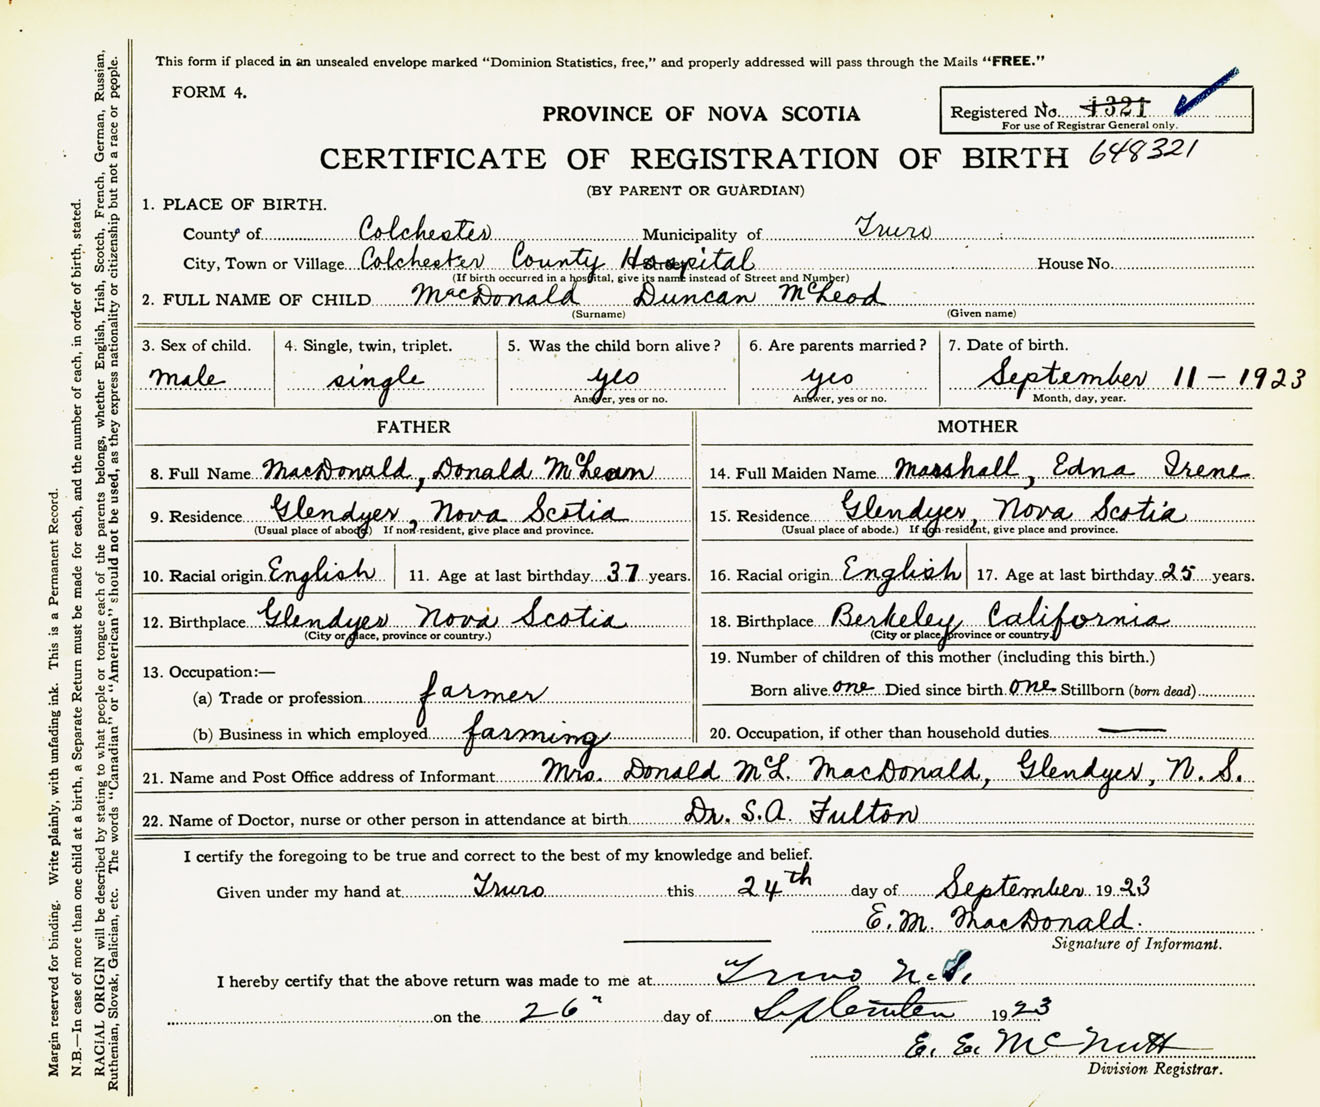 This form if placed in an unsealed envelope marked “Dominion Statistics, free,” and properly addressed will pass through the Mails “FREE.”
FORM 4.
PROVINCE OF NOVA SCOTIA
Registered No. 1321
For use of Registrar General only.
CERTIFICATE OF REGISTRATION OF BIRTH 648321
(BY PARENT OR GUARDIAN)
1. PLACE OF BIRTH.
County of Colchester Municipality of Truro
City, Town or Village Colchester County Hospital Street House No.
(If birth occurred in a hospital, give its name instead of Street and Number)
2. FULL NAME OF CHILD MacDonald Duncan McLeod
(Surname) (Given name)
3. Sex of child. 4. Single, twin, triplet. 5. Was the child born alive? 6. Are parents married? 7. Date of birth.
male single yes yes September 11 - 1923
Answer, yes or no. Answer, yes or no. Month, day, year.
FATHER MOTHER
8. Full Name MacDonald, Donald McLean 14. Full Maiden Name Marshall, Edna Irene
9. Residence Glendyer, Nova Scotia 15. Residence Glendyer, Nova Scotia
(Usual place of abode.) If non-resident, give place and province. (Usual place of abode.) If non-resident, give place and province.
10. Racial origin English 11. Age at last birthday 37 years. 16. Racial origin English 17. Age at last birthday 25 years.
12. Birthplace Glendyer Nova Scotia 18. Birthplace Berkeley California
(City or place, province or country.) (City or place, province or country.)
13. Occupation:— 19. Number of children of this mother (including this birth.)
(a) Trade or profession farmer Born alive one Died since birth one Stillborn (born dead)
(b) Business in which employed farming 20. Occupation, if other than household duties —
21. Name and Post Office address of Informant Mrs. Donald McL. MacDonald, Glendyer, N. S.
22. Name of Doctor, nurse or other person in attendance at birth Dr. S. A. Fulton
I certify the foregoing to be true and correct to the best of my knowledge and belief.
Given under my hand at Truro this 24th day of September 1923
E. M. MacDonald.
Signature of Informant.
I hereby certify that the above return was made to me at Truro N.S.
on the 26" day of September 1923
E. E. McNutt
Division Registrar.
Margin reserved for binding. Write plainly, with unfading ink. This is a Permanent Record.
N.B.—In case of more than one child at a birth, a Separate Return must be made for each, and the number of each, in order of birth, stated.
RACIAL ORIGIN will be described by stating to what people or tongue each of the parents belongs, whether English, Irish, Scotch, French, German, Russian,
Ruthenian, Slovak, Galician, etc. The words “Canadian” or “American” should not be used, as they express nationality or citizenship but not a race or people.